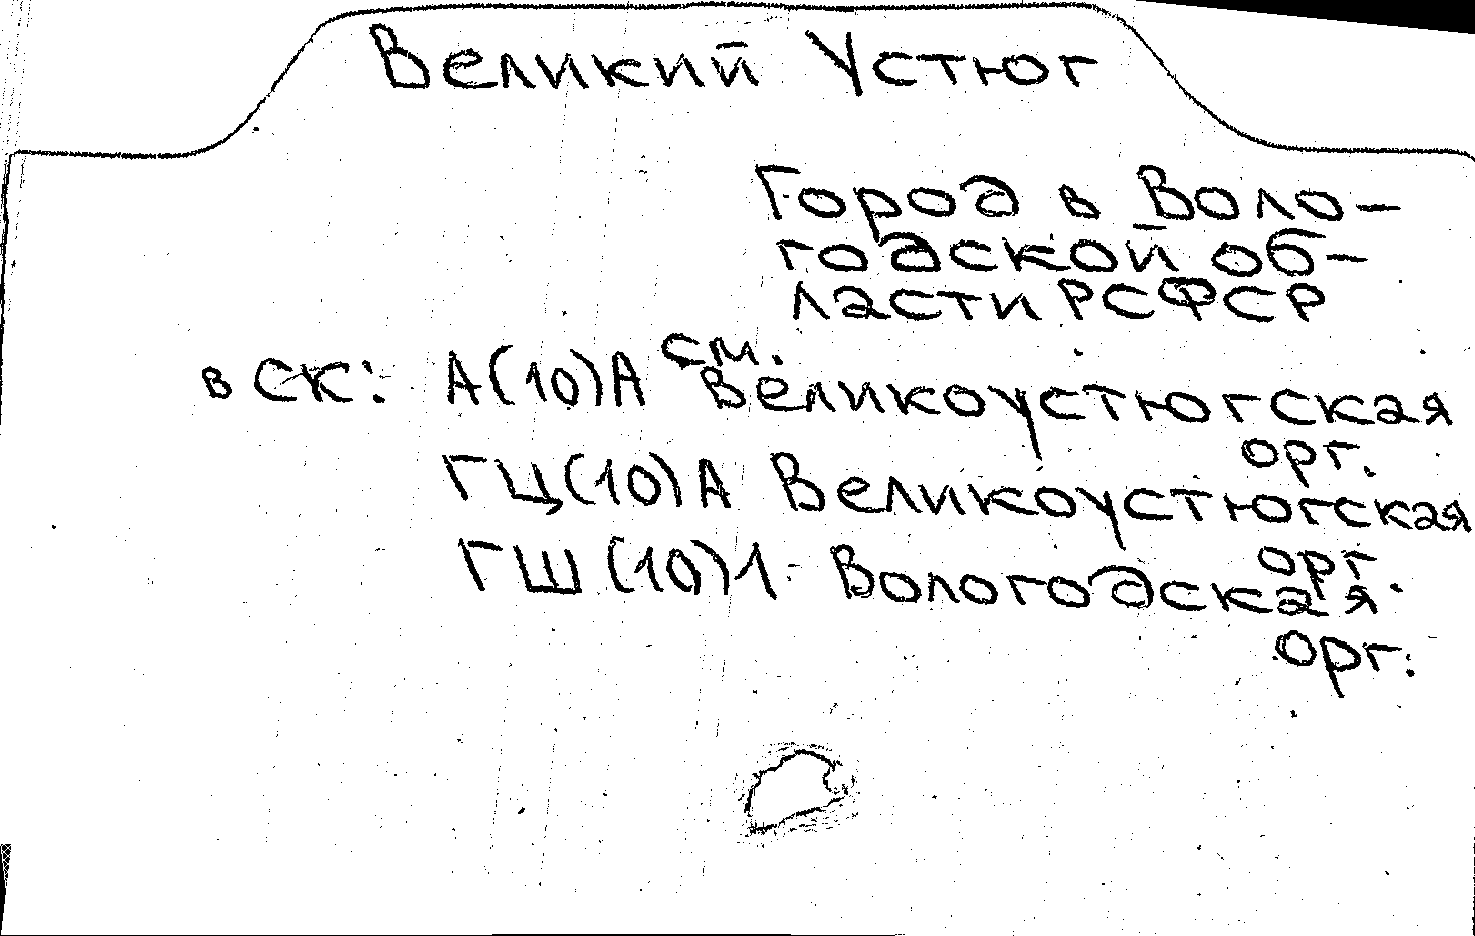 Великий Устюг
Город в Воло-
годской об-
ласти РСФСР
в СК: А(10)А см. Великоустюгская
орг.
ГЦ(10)А Великоустюгская
орг.
ГШ(10)1 Вологодская
орг.